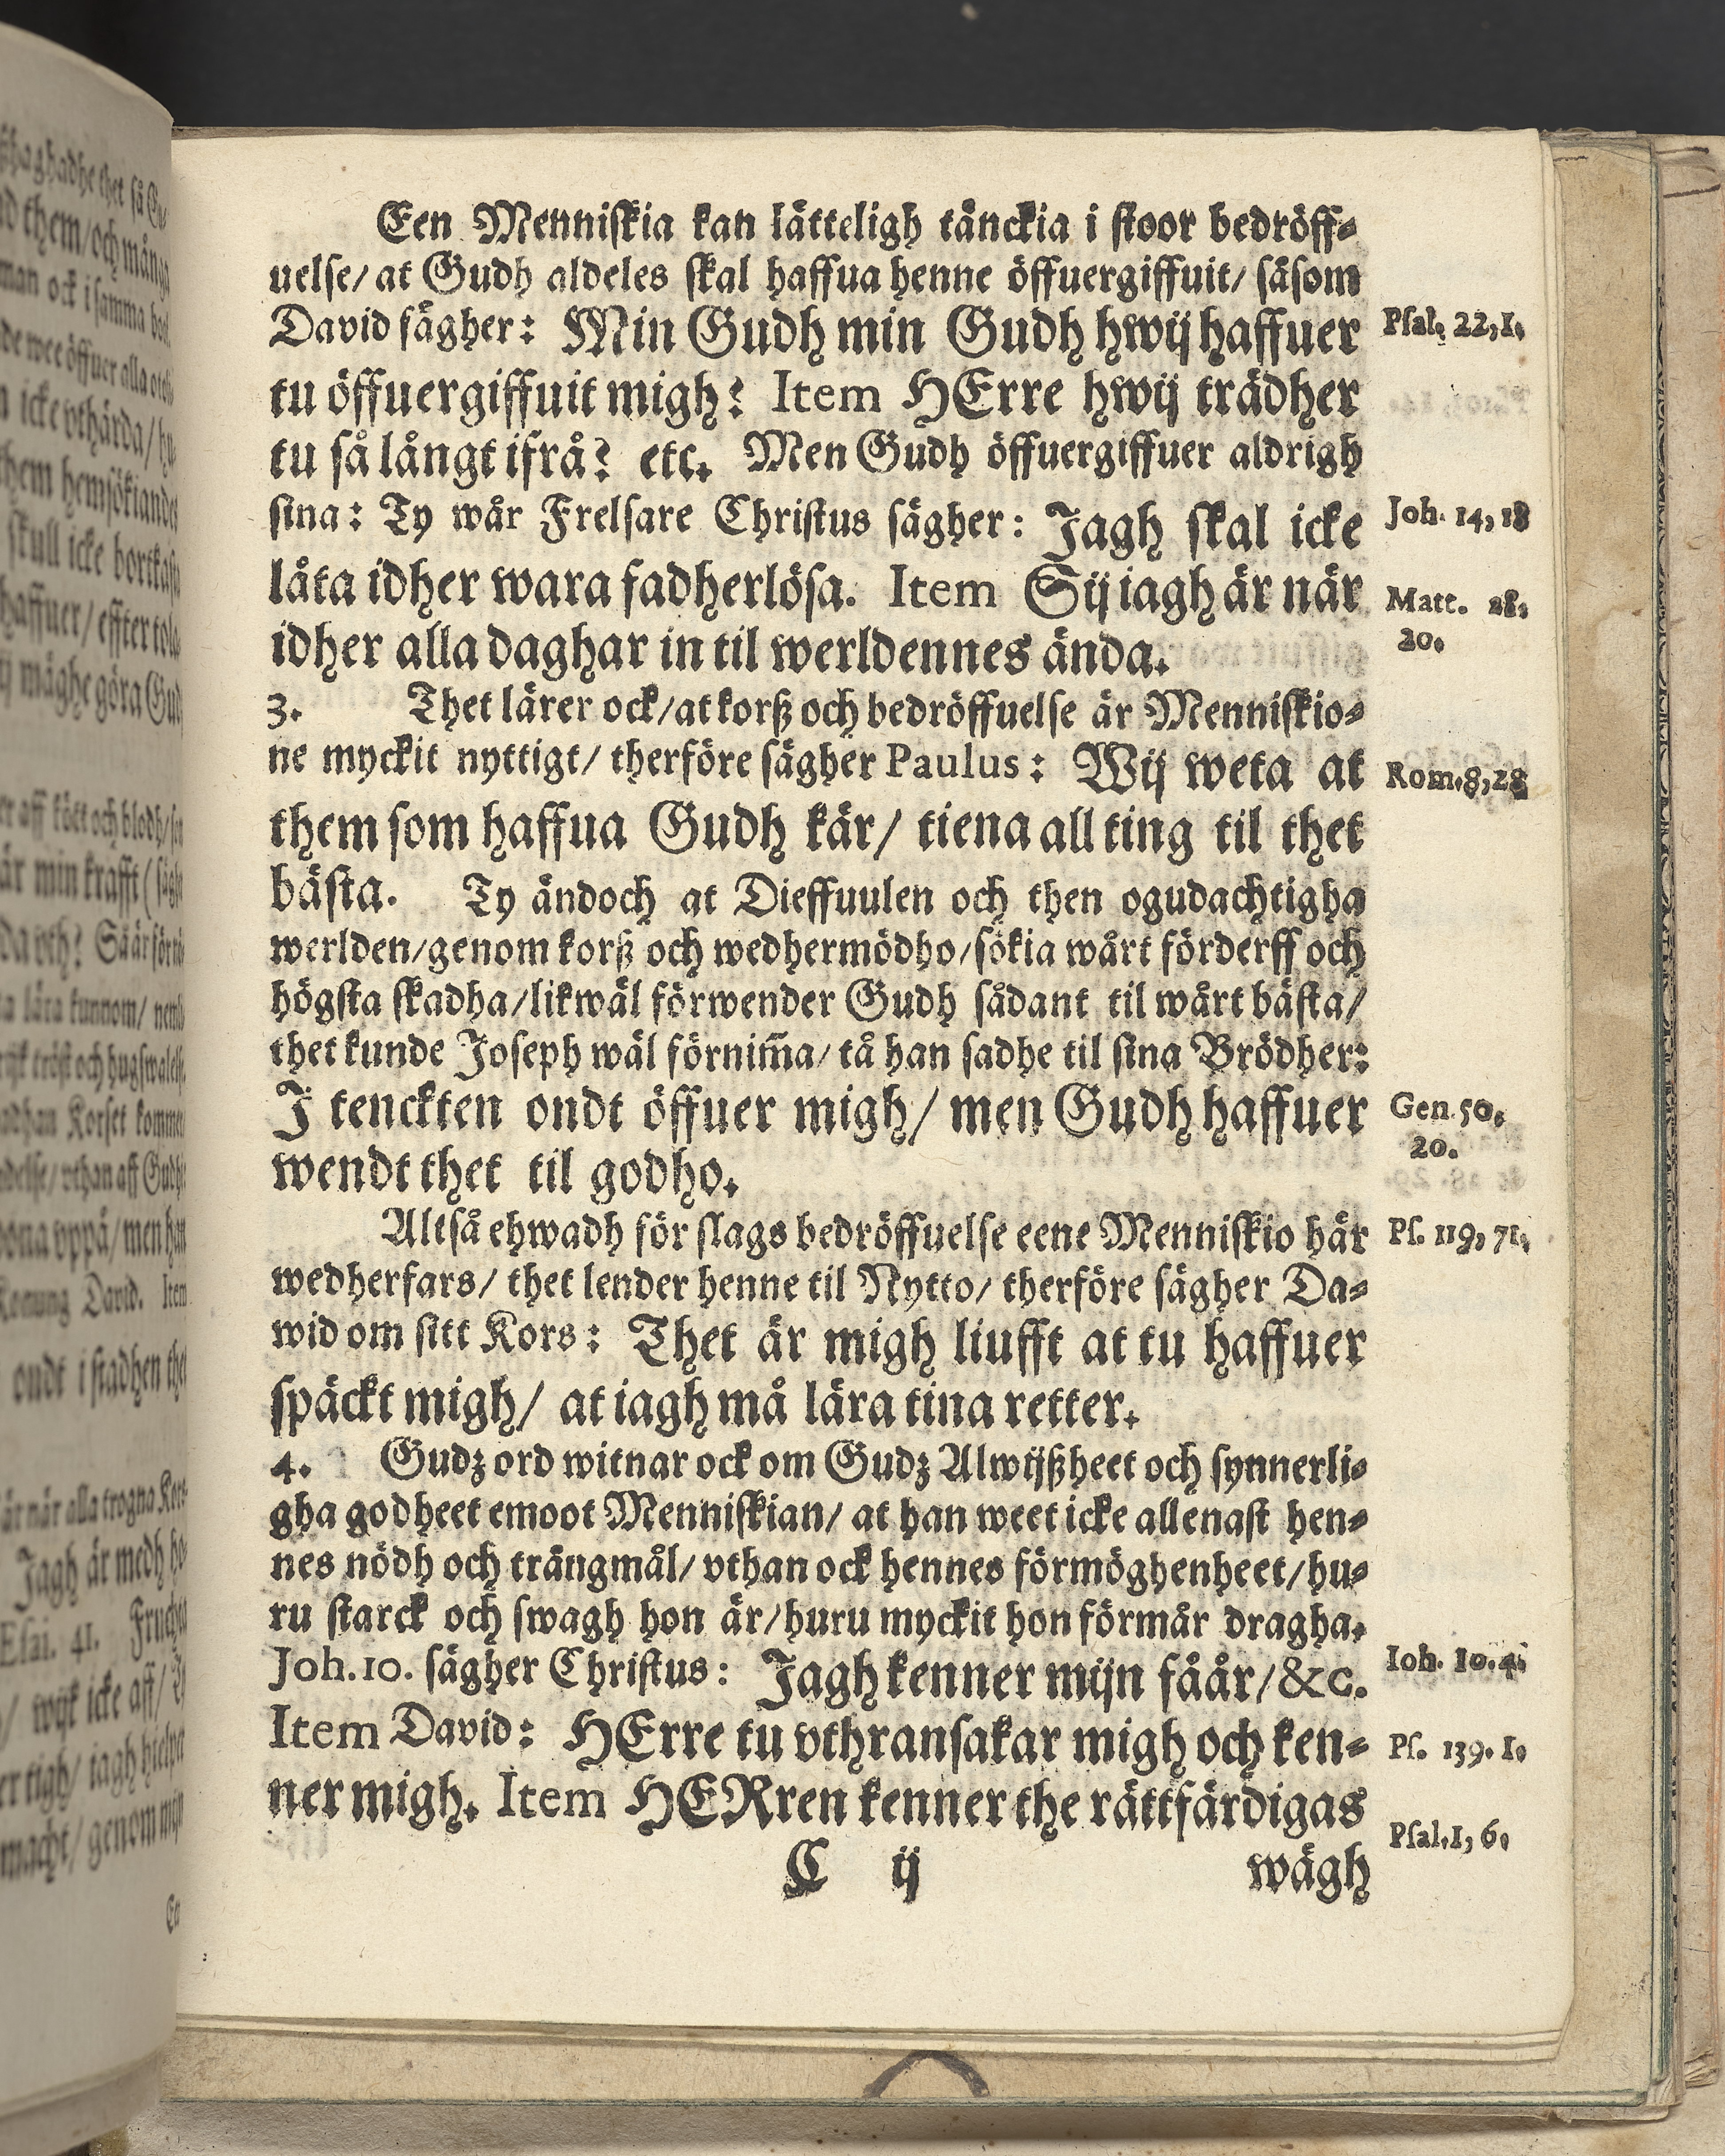 Een Menniſkia kan lätteligh tänckia i ſtoor bedröff⸗
uelſe/ at Gudh aldeles ſkal haffua henne öffuergiffuit/ ſåſom
David ſägher: Min Gudh min Gudh hwij haffuer
Pſal. 22,1.
tu öffuergiffuit migh? Item HErre hwij trädher
tu så långt ifrå? etc. Men Gudh öffuergiffuer aldrigh
ſina: Ty wår Frelſare Chriſtus ſägher: Jagh ſkal icke
Joh. 14,18
låta idher wara fadherlöſa. Item Sij iagh är när
Matt. 28.
20.
idher alla daghar in til werldennes ända.
3. Thet lärer ock/at korß och bedröffuelſe är Menniſkio⸗
ne myckit nyttigt/ therföre ſägher Paulus: Wij weta at
Rom.8,28
them ſom haffua Gudh kär/ tiena all ting til thet
bäſta. Ty ändoch at Dieffuulen och then ogudachtigha
werlden/genom korß och wedhermödho/ſökia wårt förderff och
högſta ſkadha/likwäl förwender Gudh ſådant til wårt bäſta/
thet kunde Joſeph wäl förnim̃a/ tå han ſadhe til ſina Brödher:
J tenckten ondt öffuer migh/ men Gudh haffuer
Gen.50.
20.
wendt thet til godho.
Altſå ehwadh för ſlags bedröffuelſe eene Menniſkio här
Pſ. 119, 71.
wedherfars/ thet lender henne til Nytto/ therföre ſägher Da⸗
wid om ſitt Kors: Thet är migh liufft at tu haffuer
ſpäckt migh/ at iagh må lära tina retter.
4. Gudz ord witnar ock om Gudz Alwijßheet och ſynnerli⸗
gha godheet emoot Menniſkian/ at han weet icke allenaſt hen⸗
nes nödh och trångmål/ vthan ock hennes förmöghenheet/hu⸗
ru ſtarck och ſwagh hon är/huru myckit hon förmår dragha.
Joh.10. ſägher Chriſtus: Jagh kenner mijn fåår/&c.
Ioh. 10.4.
Item David: HErre tu vthranſakar migh och ken⸗
Pſ. 139. 1.
ner migh. Item HERren kenner the rättfärdigas
Pſal.1, 6.
C ij wägh